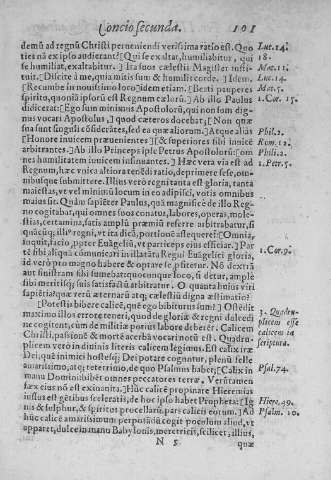 Concio secunda. 101
demũ ad regnũ Christi perueniendi verissima ratio est. Quo Luc. 14.
ties nã ex ipso audierant? [Qui se exaltat, humiliabitur, qui 18.
se humiliat, exaltabitur.] Ita suos cælestii Magister insti- Mat. 11.
tuit. [Discite à me, quia mitis sum & humilis corde.] Idem. Luc. 14.
[Recumbe in nouissimo loco] idem etiam. [Beati pauperes Mat. 5.
spiritu, quoniã ipsorũ est Regnum cælorũ.] Ab illo Paulus 1. Cor. 15.
didicerat: [Ego sum minimus Apostolorũ, qui non sum dig-
nus vocari Apostolus,] quod cæteros docebat, [Non quæ
sua sunt singuli cõsiderãtes, sed ea quæ aliorum.] Atque aliàs Phil. 2.
[Honore inuicem præuenientes] & [superiores sibi inuicẽ Rom. 12.
arbitrantes.] Ab illo Princeps ipse Petrus Apostolorũ: [om Phil. 2.
nes humilitatem inuicem insinuantes.] Hæc vera via est ad 1. Petr. 5.
Regnum, hæc vnica altiora tenẽdi ratio, deprimere sese, om-
nibusque submittere. Illius verò regni tanta est gloria, tanta
maiestas, vt vel minimũ locum in eo adipisci, votis omnibus
maius sit. Quàm sapiẽter Paulus, quã magnificè de illo Reg-
no cogitabat, qui omnes suos conatus, labores, opera, mole-
stias, certamina, satis amplũ præmiũ referre arbitrabatur, si
quacũq; illi° regni, vt ita dicã, portionẽ assequeret? [Omnia,
inquit, facio, ppter Euãgeliũ, vt particeps eius efficiar.] Par 1. Cor. 9.
tẽ sibi aliquã cõmunicari in illa tãta Regni Euãgelici gloria,
id verò pro magno habere & optare se, psitetur. Nõ dextrã
aut sinistram sibi sumebat: quocunque loco, si detur, ampla
sibi meritisq; suis satisfactũ arbitratur. O quanta huius viri
sapiẽtia! quæ rerũ æternarũ atq; cælestiũ digna æstimatio?
[Potestis bibere calicẽ, quẽ ego bibiturus sum?] Ostẽdit
maximo illos errore teneri, quod de gloriæ & regni dulcedi 3. Quadru-
ne cogitent, cùm de militiæ potiùs labore deberẽt. Calicem plicem esse
Christi, passionẽ & mortẽ acerbã vocari nota est. Quadru- calicem in
plicem verò in diuinis literis calicem legimus. Est calix iræ scriptura.
Dei, quẽ inimici hostesq; Dei potare coguntur, plenũ felle
amarissimo, atq; intepido, de quo Psalmus habet; [Calix in Psal. 74.
manu Domini bibẽt omnes peccatores terræ. Verũtamen
fæx eius nõ est exinanita.] Hũc calicẽ propinare Hieremias
iussus est gẽtibus sceleratis, de hoc ipso habet Propheta: [Ig Hiere. 49.
nis & sulphur, & spiritus procellarũ, pars calicis eorum. Ad Psalm. 10.
hũc calicem amarissimũ cogit peccator poculum aliud, vt
apparet, dulce in manu Babylonis, meretricis, scilicet, illius,
N 5. quæ